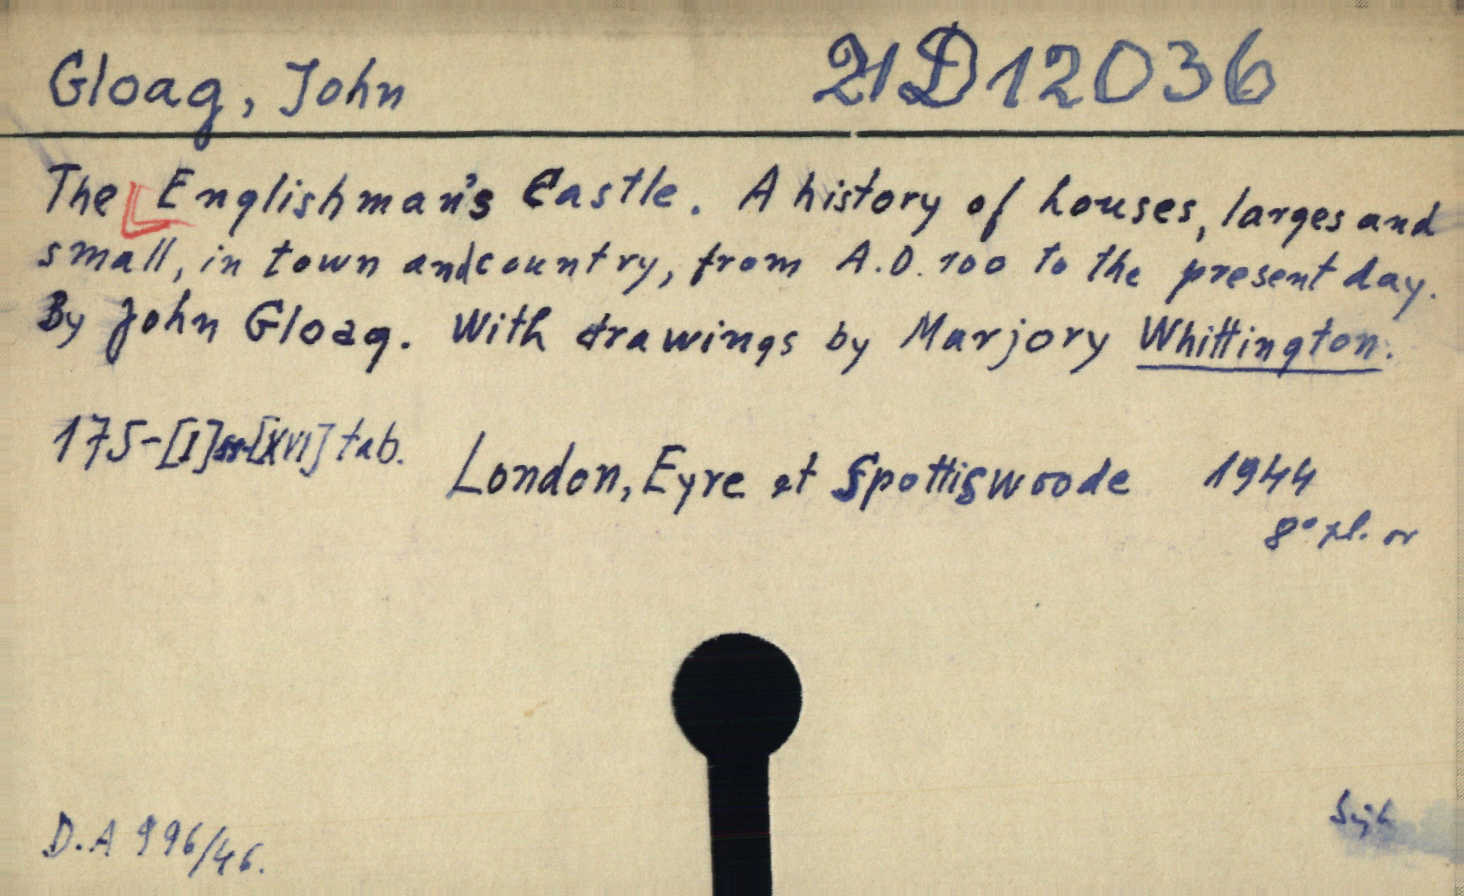 Gloag, John 21D12036
The Englishman's Castle. A history of houses, larges and
small, in town and country, from A.D. 100 to the present day.
By John Gloag. With drawings by Marjory Whittington.
175-[I]-[XVI] tab.
London, Eyre et Spottiswoode 1944
8° pl. or
D.A 996/46.